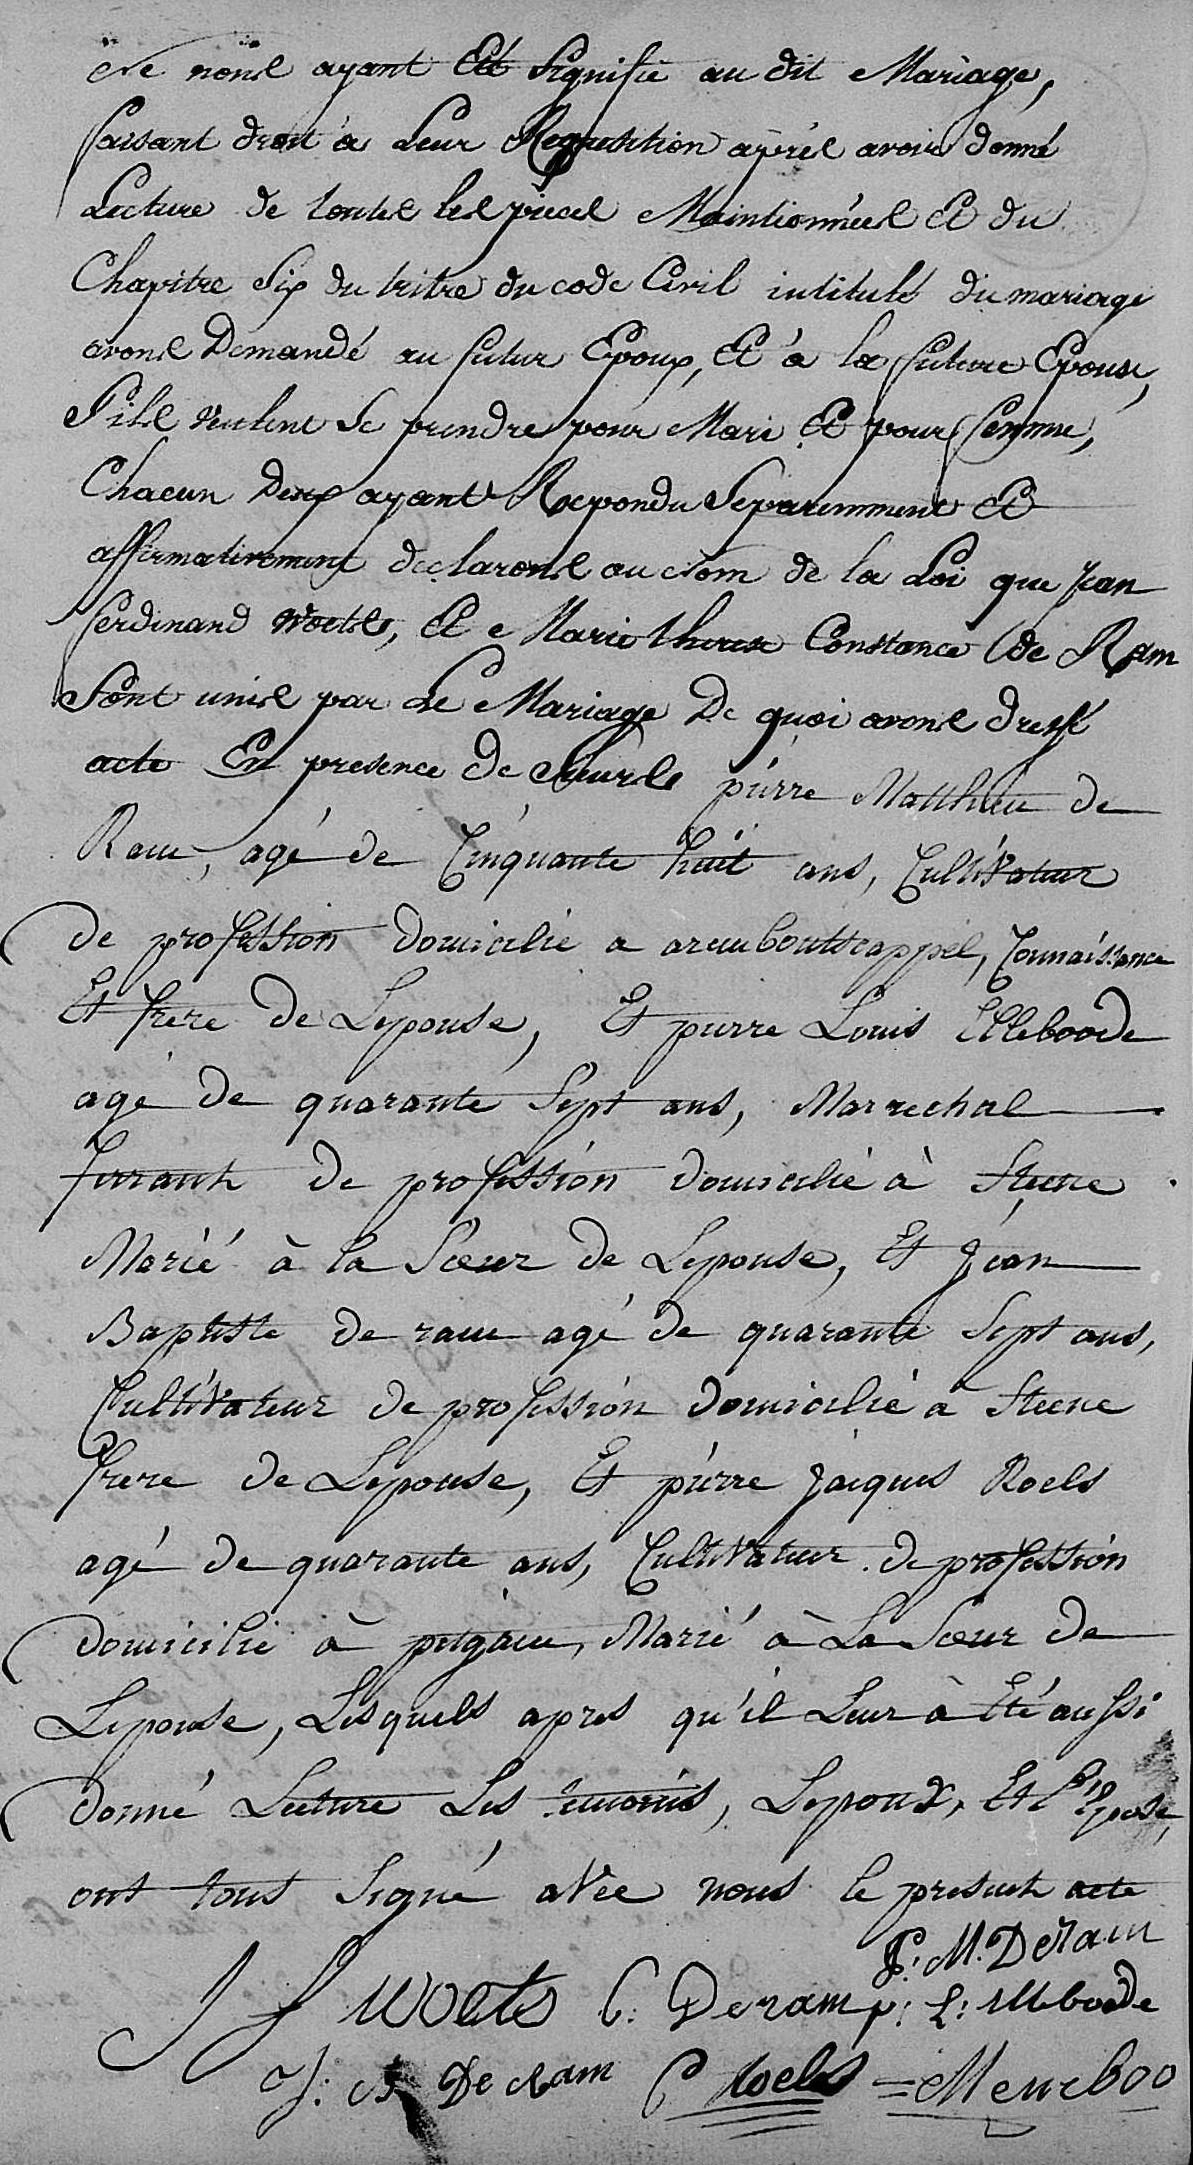 Ne nous ayant Eté Signifié au dit Mariage,
faisant droit à Leur Requisition après avoir donné
Lecture de toutes les pieces Maintionnées Et du
Chapitre Six du tritre du code Civil intitulé du mariage
avons Demandé au futur Epoux, Et à la future Epouse,
S'ils veulent Se prendre pour Mari Et pour femme,
Chacun Deux ayant Repondu Separemment Et
affirmativement declarons au Nom de la Loi que Jean
ferdinand Woets, Et Marie therese Constance de Ram
Sont unis par Le Mariage De quoi avons dressé
acte En presence de Sieurs pierre Matthieu de
Ram, agé de Cinquante huit ans, Cultivateur
de profession domicilié a arembouttscappel, Connaissance
Et frere de Lepouse, Et pierre Louis Elleboode
agé de quarante Sept ans, Marrechal
ferrant de profession domicilié à Steene
Marié à la Sœur de Lepouse, Et Jean
Baptiste de ram agé de quarante Sept ans,
Cultivateur de profession domicilié a Steene
frere de Lepouse, Et pierre Jacques Roels
agé de quarante ans, Cultivateur de profession
domicilié à pitgam, Marié à La Sœur de
Lepouse, Lesquels apres qu'il Leur à Eté aussi
donné Lecture Les temoins, Lepoux, Et l'Epouse,
ont tous Signé avec nous le present acte
P: M. DeRam
J f woets C: Deram p: L: Elleboode
J: B DeRam P Roels = Meneboo